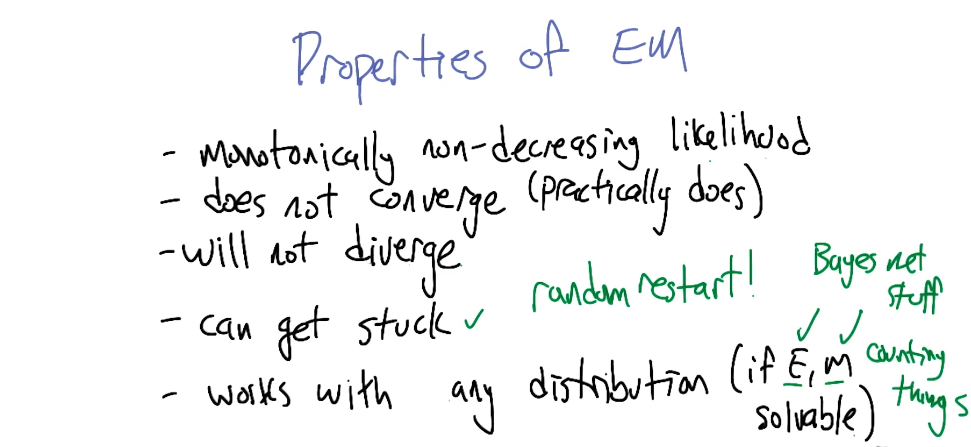 Properties of EM
- monotonically non-decreasing likelihood
- does not converge (practically does)
- will not diverge
- can get stuck ✓ random restart!
- works with any distribution (if E, M
solvable)
Bayes net
stuff
counting
things